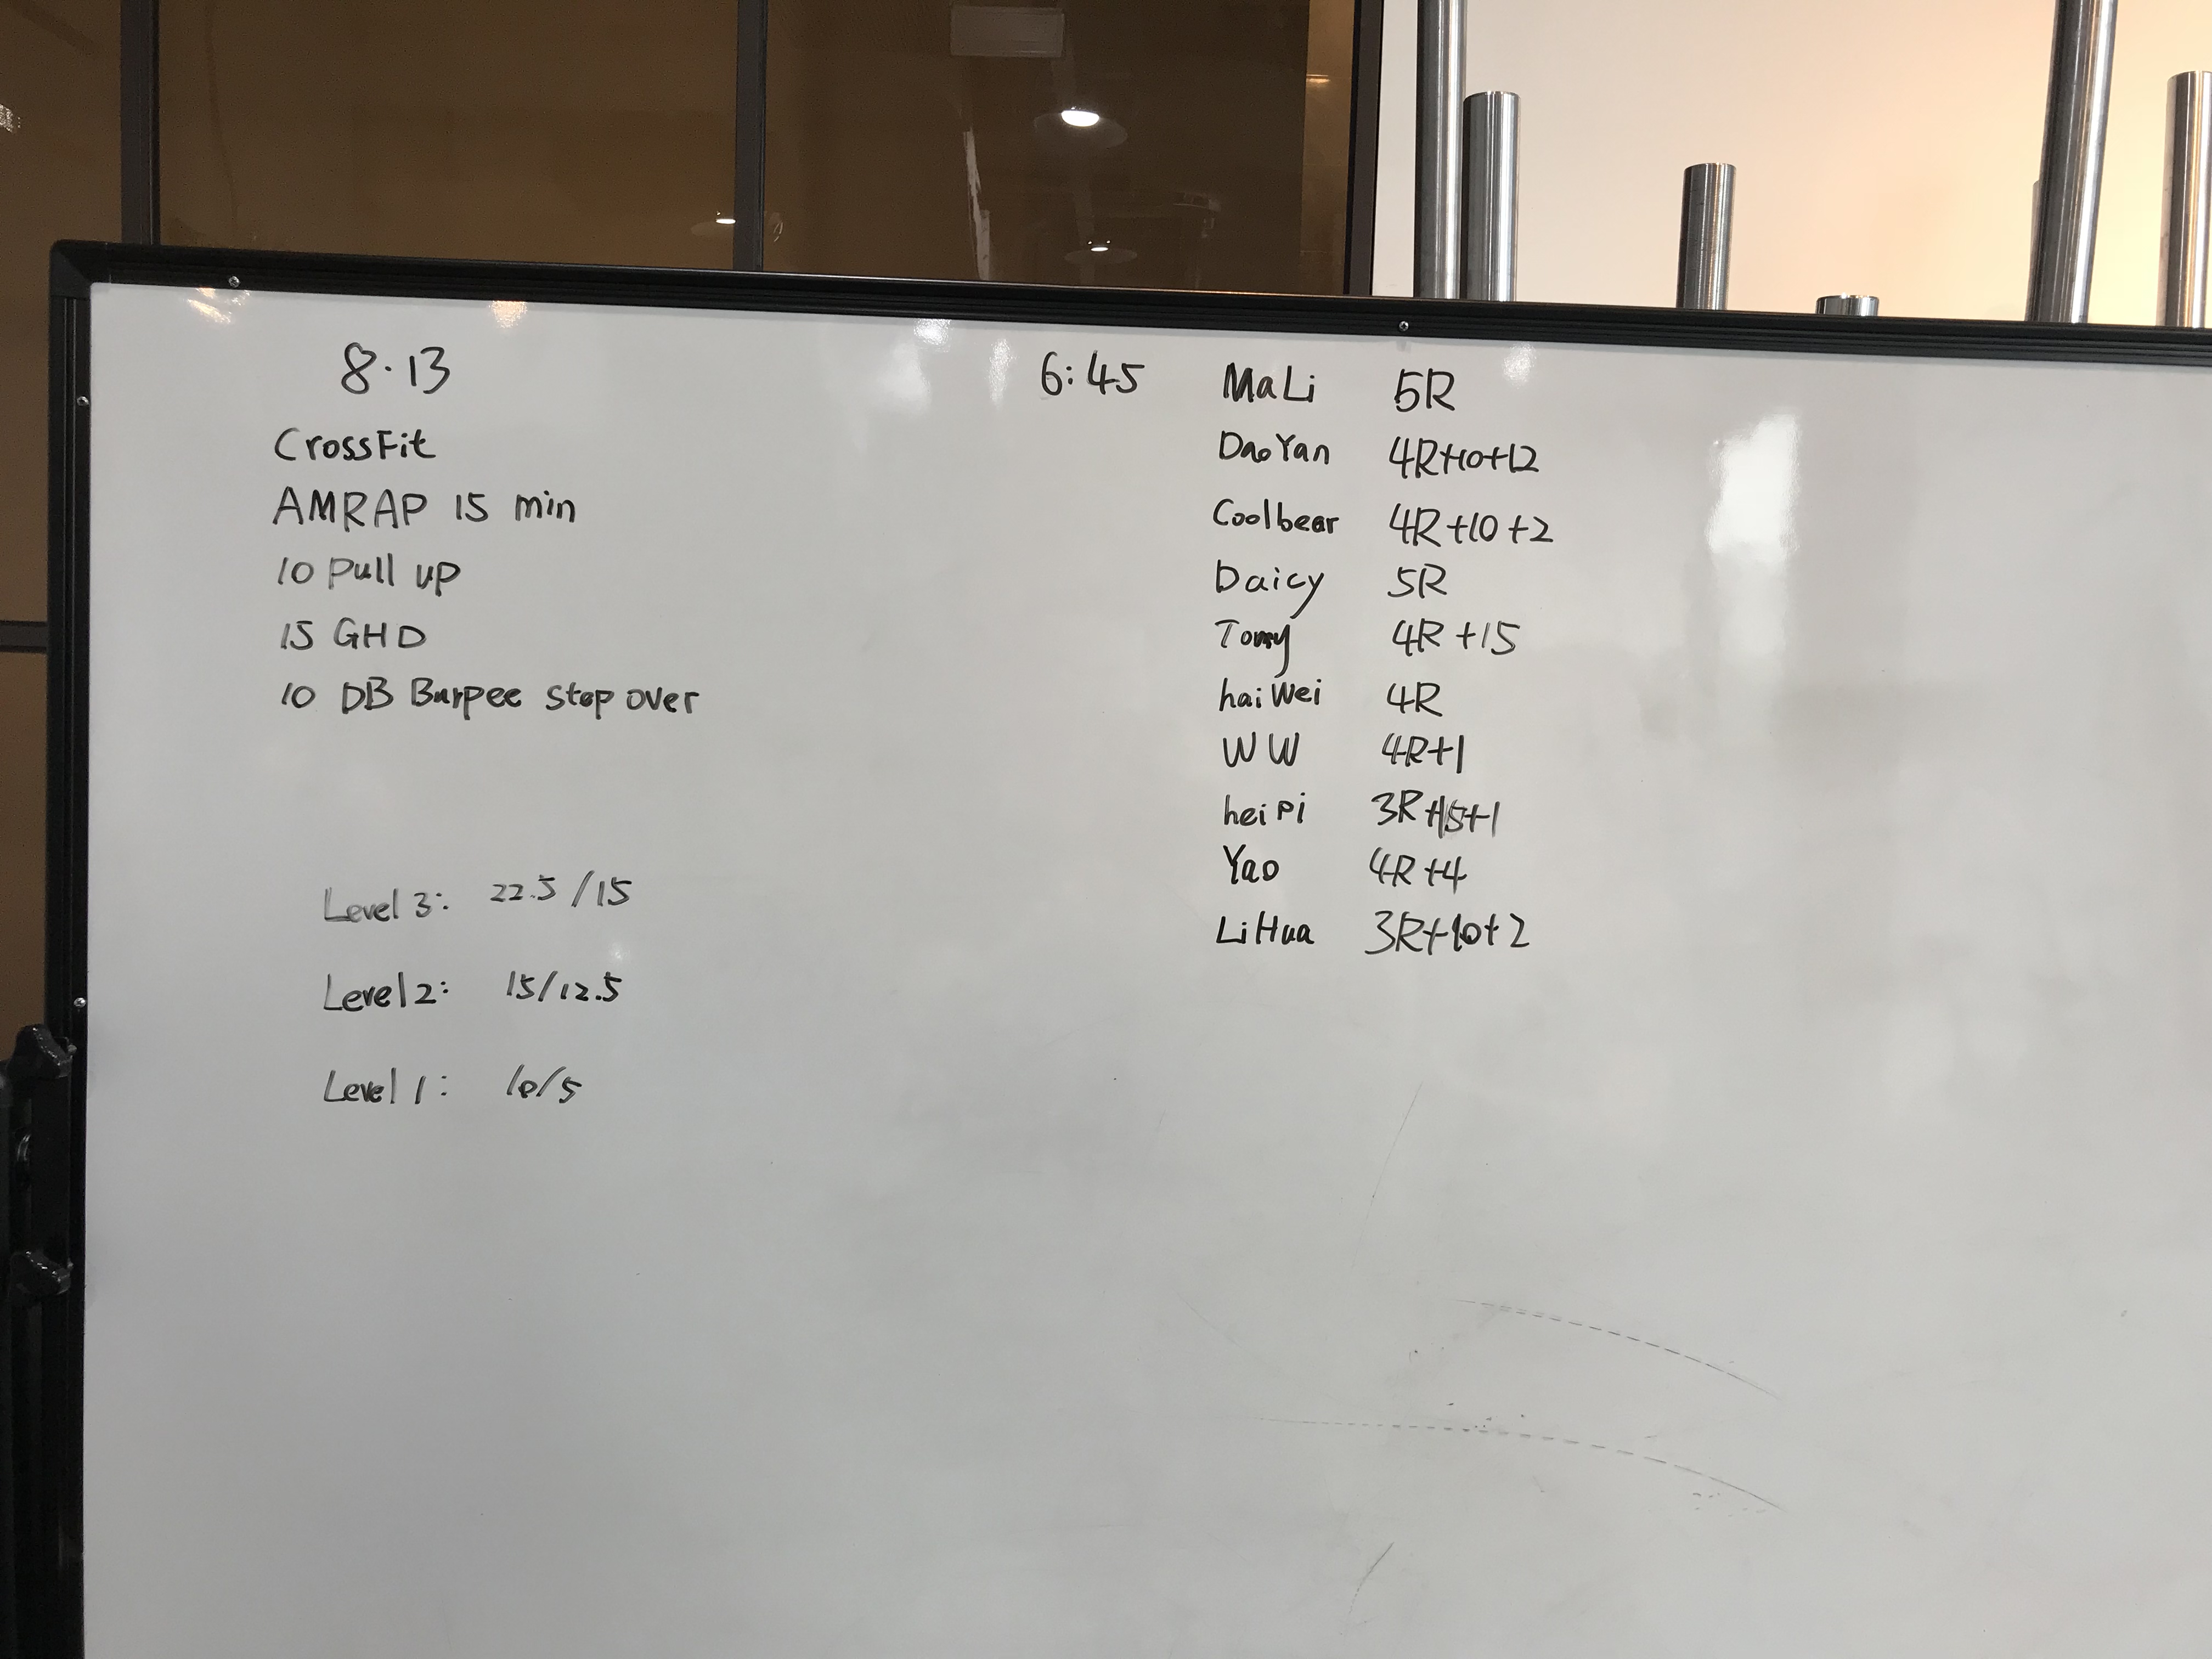 8.13
CrossFit
AMRAP 15 min
10 Pull up
15 GHD
10 DB Burpee step over
Level 3: 22.5/15
Level 2: 15/12.5
Level 1: 10/5
6:45 MaLi 5R
DaoYan 4R+10+12
Coolbear 4R+10+2
Daicy 5R
Tomy 4R+15
haiWei 4R
WW 4R+1
heiPi 3R+15+1
Yao 4R+4
LiHua 3R+10+2